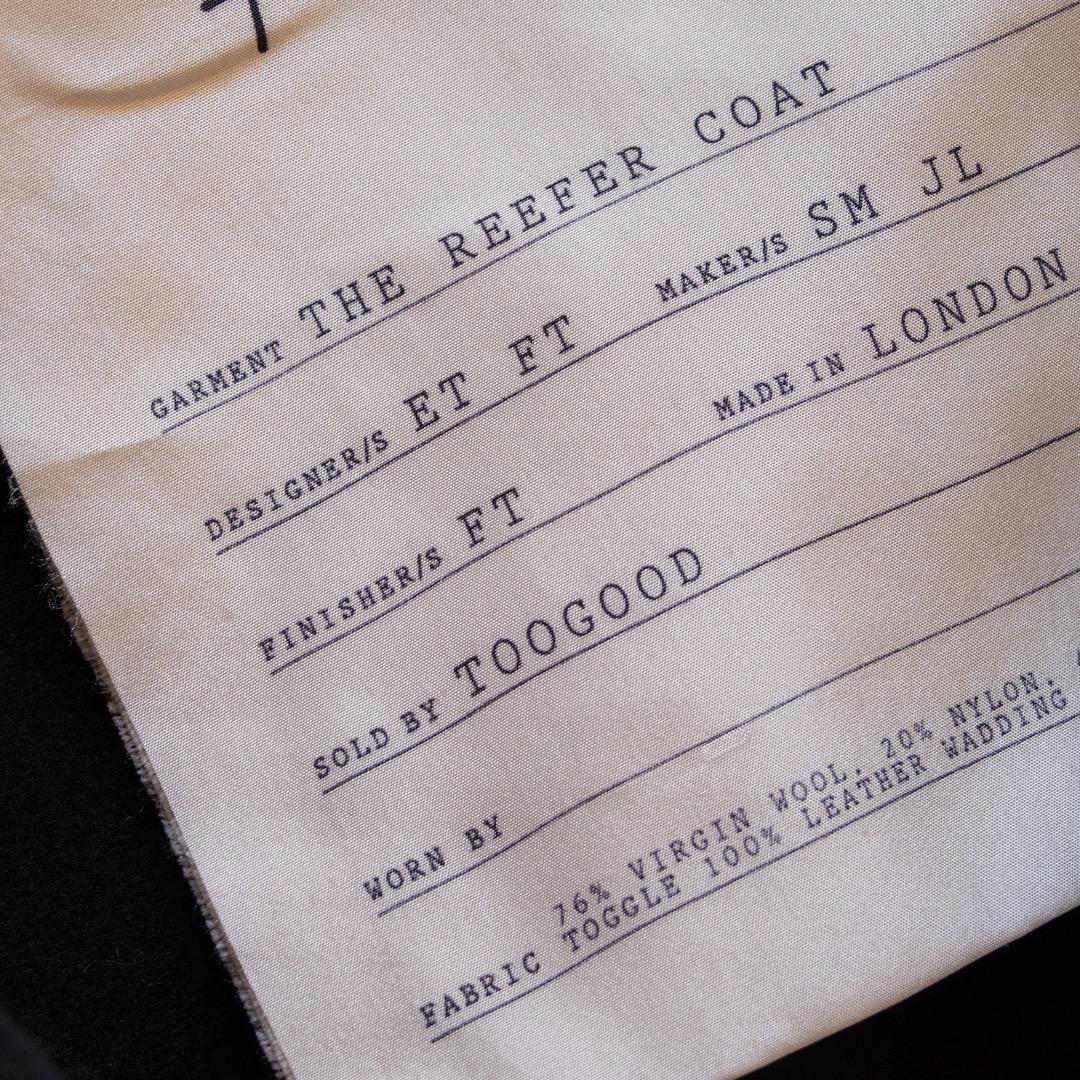 GARMENT THE REEFER COAT
DESIGNER/S ET FT MAKER/S SM JL
FINISHER/S FT MADE IN LONDON
SOLD BY TOOGOOD
WORN BY
76% VIRGIN WOOL, 20% NYLON,
FABRIC TOGGLE 100% LEATHER WADDING